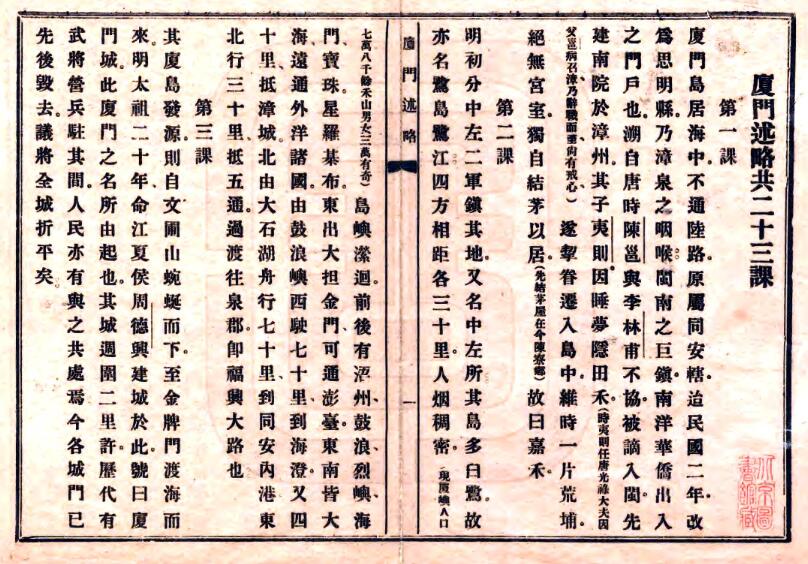 廈門述略共二十三課
第一課
廈門島居海中。不通陸路。原屬同安轄。迨民國二年。改
爲思明縣。乃漳泉之咽喉。閩南之巨鎮。南洋華僑出入
之門戶也。溯自唐時陳邕與李林甫不協。被謫入閩。先
建南院於漳州。其子夷則。因睡夢隱田禾。(時夷則任唐光祿大夫因
父邕病召滯乃辭職而歸尚有戒心)遂挈眷遷入島中。維時一片荒埔。
絕無宮室。獨自結茅以居。(先結茅屋在今陳寮鄉)故曰嘉禾。
第二課
明初分中左二軍鎮其地。又名中左所。其島多白鷺。故
亦名鷺島鷺江。四方相距各三十里。人烟稠密。(現廈嶼人口
七萬八千餘禾山男女三萬有奇)島嶼瀠迴。前後有浯州、鼓浪、烈嶼、海
門、寶珠、星羅棊布。東出大担金門。可通澎臺。東南皆大
海。遠通外洋諸國。由鼓浪嶼西駛七十里。到海澄。又四
十里。抵漳城。北由大石湖舟行七十里。到同安內港。東
北行三十里。抵五通。過渡往泉郡。卽福興大路也
第三課
其廈島發源。則自文圃山蜿蜒而下。至金牌門渡海而
來。明太祖二十年。命江夏侯周德興建城於此。號曰廈
門城。此廈門之名所由起也。其城週圍二里許。歷代有
武將營兵駐其間。人民亦有與之共處焉。今各城門已
先後毀去。議將全城折平矣。
廈門述略
一